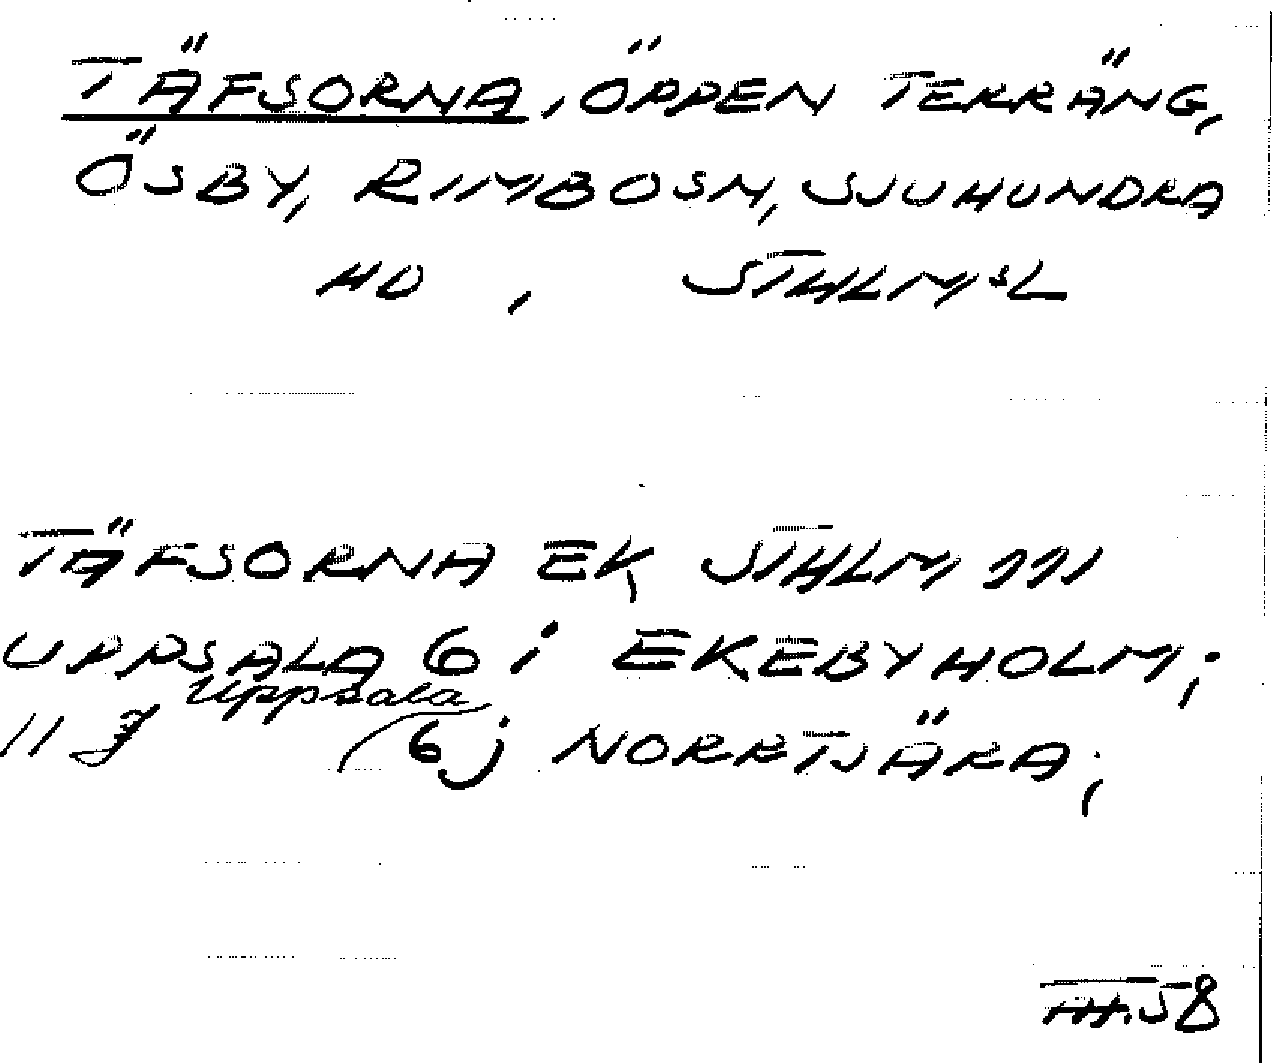 TÄFSORNA, ÖPPEN TERRÄNG,
ÖSBY, RIMBOSN, SJUHUNDRA
HD, STHLMSL
TÄFSORNA EK STHLM 111
UPPSALA 6 i EKEBYHOLM;
11 Uppsala 6j NORRTJÄRA;
TH.58